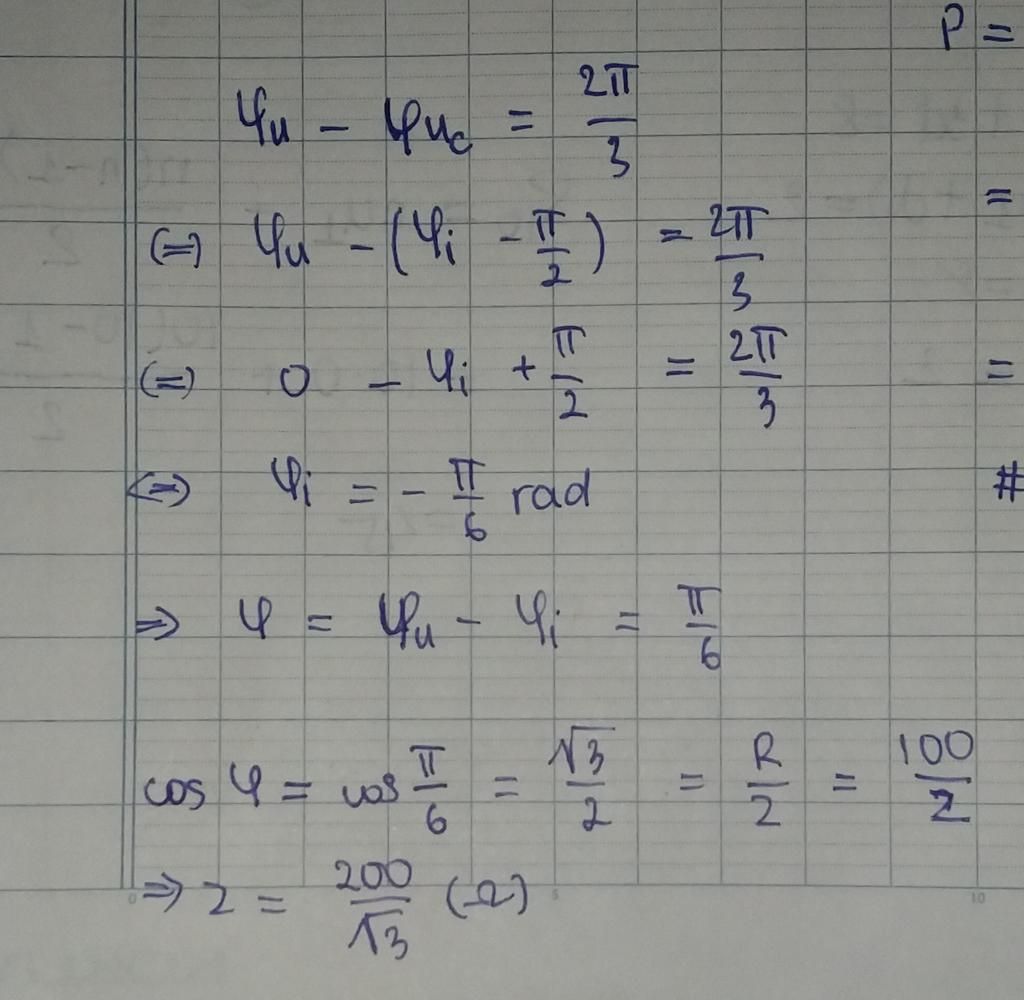 P =
φu - φuc = 2π/3
(=) φu - (φi - π/2) = 2π/3
=
(=) 0 - φi + π/2 = 2π/3
=
<=> φi = - π/6 rad
#
=> φ = φu - φi = π/6
cos φ = cos π/6 = √3/2 = R/Z = 100/Z
=> Z = 200/√3 (Ω)
0 5 10